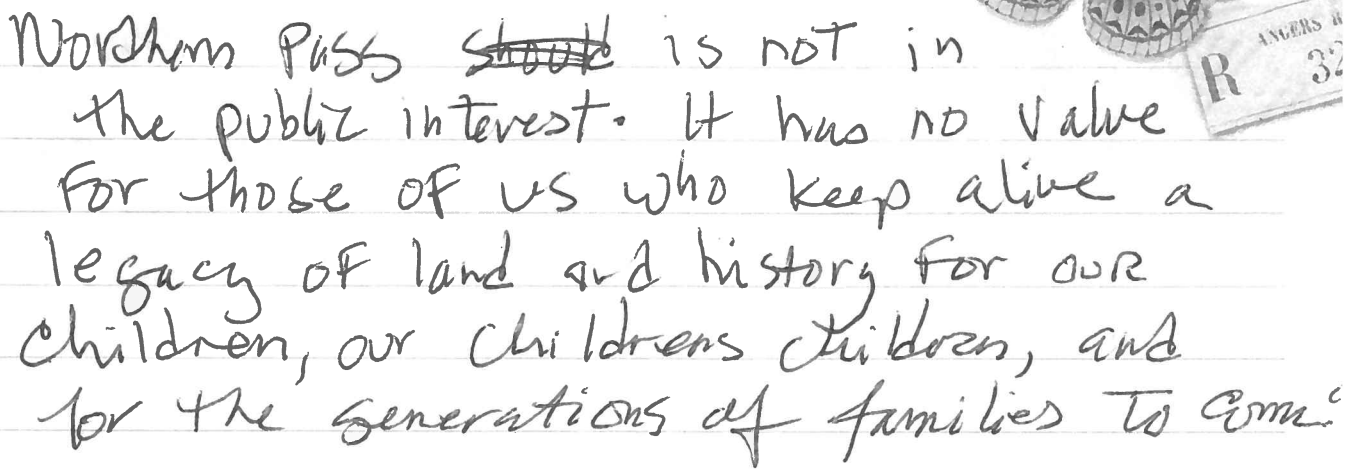 Northern Pass should is not in
the public interest. It has no value
for those of us who keep alive a
legacy of land and history for our
children, our childrens children, and
for the generations of families to come.
ANGERS
R 32